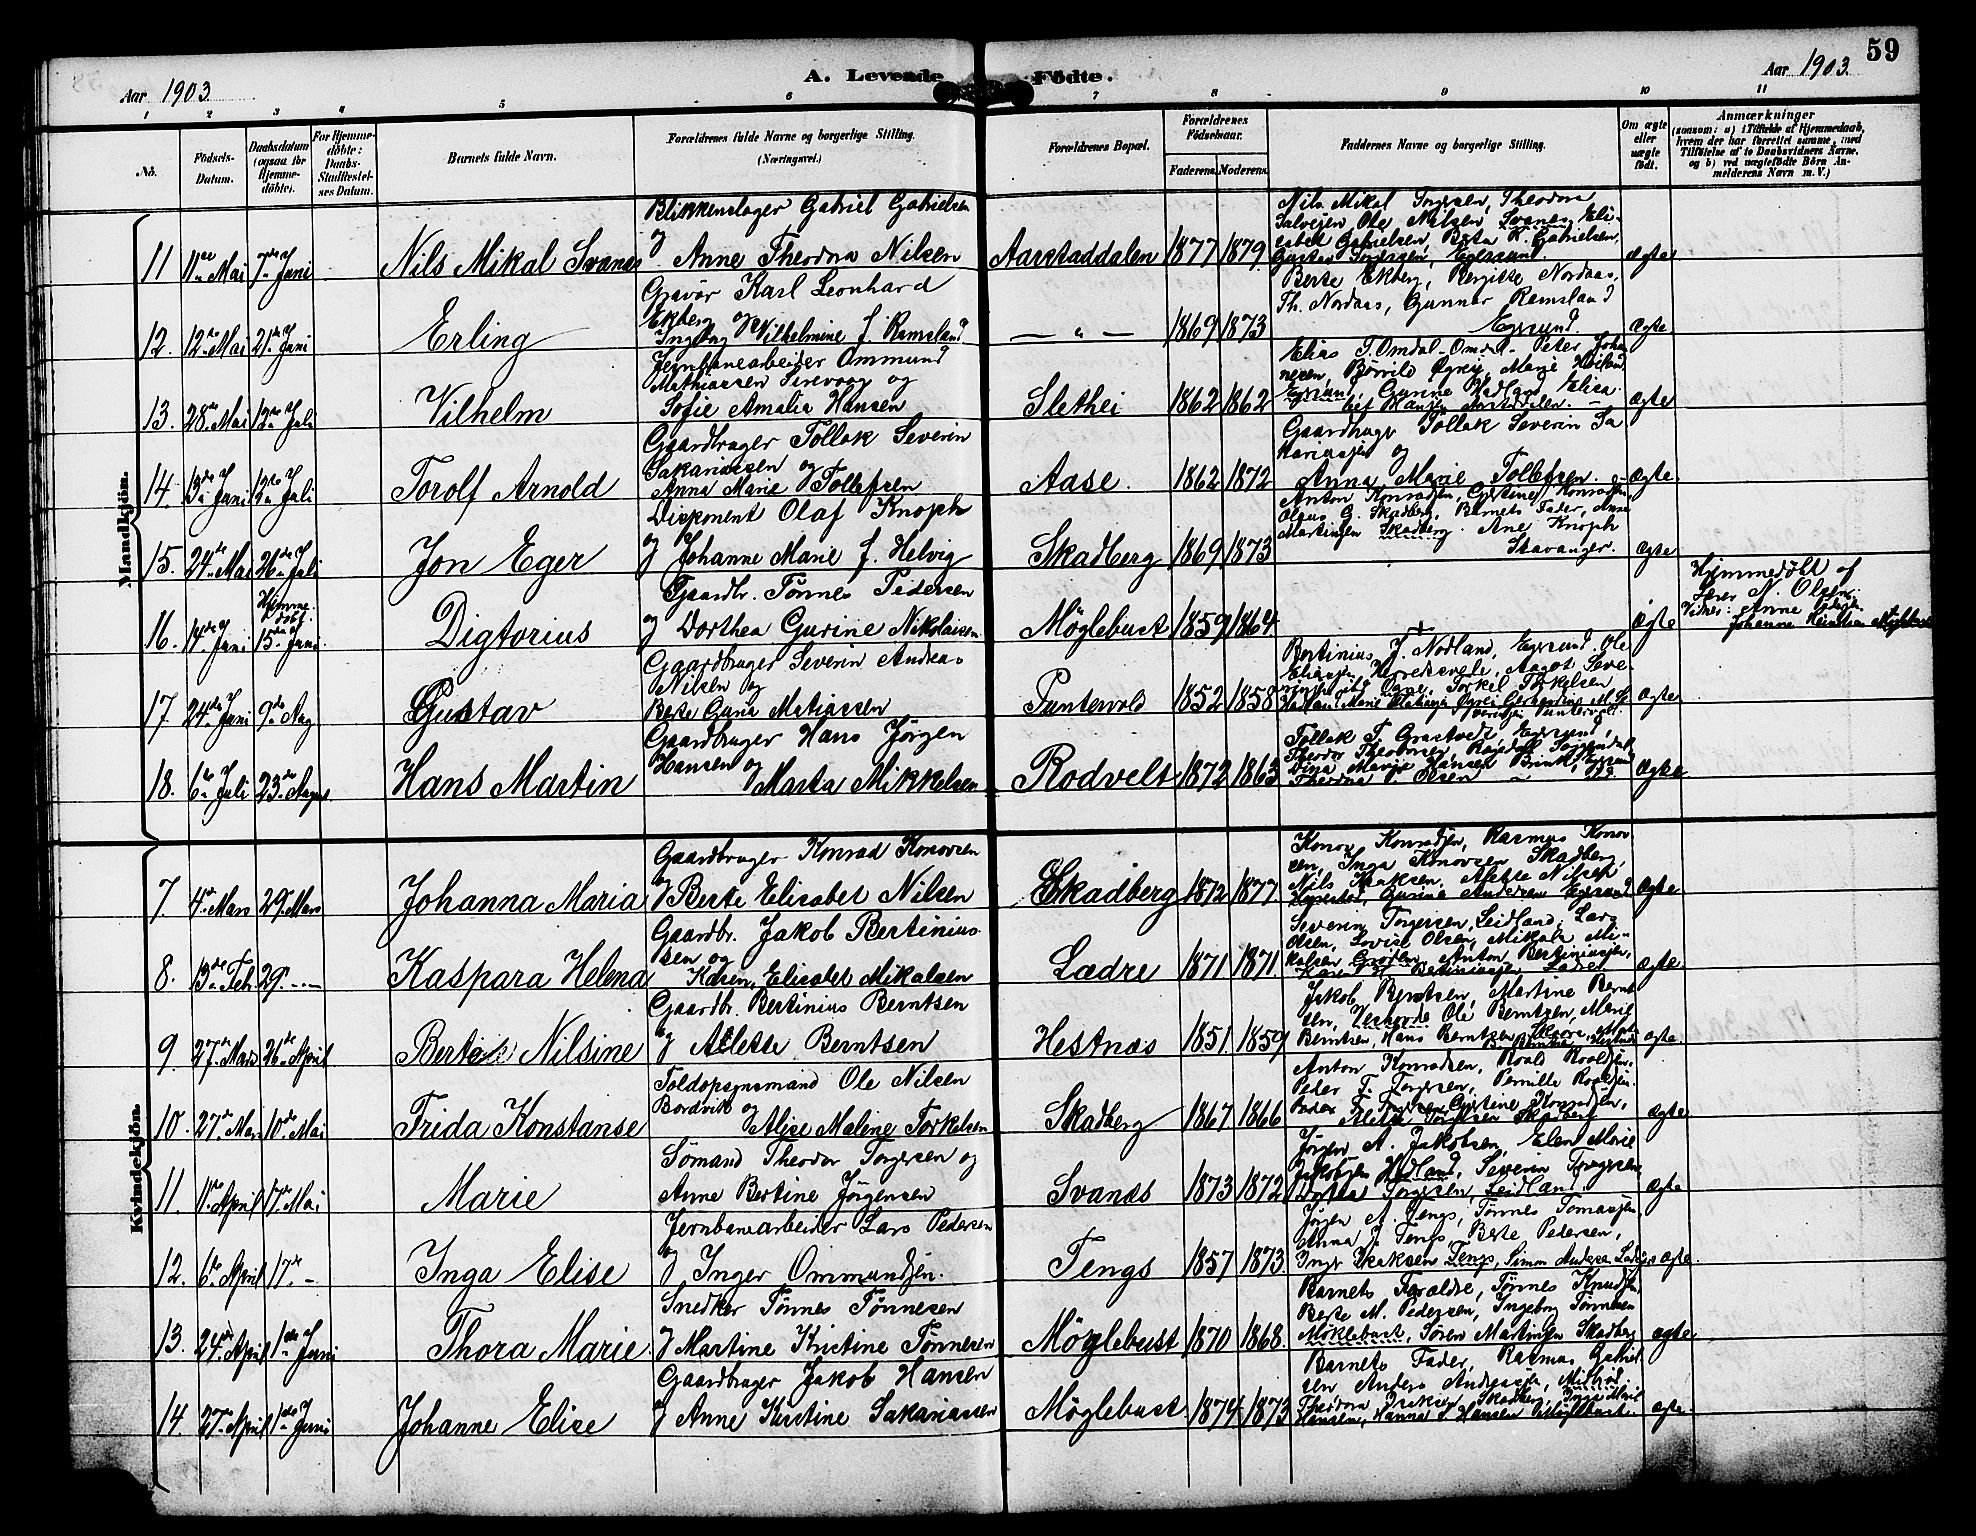 59
A. Levende Födte.
Aar 1903
Aar 1903
1 2 3 4 5 6 7 8 9 10 11
No.
Födsels-Datum.
Daabsdatum (ogsaa for Hjemmedöbte).
For Hjemmedöbte: Daabs-Stadfæstelses Datum.
Barnets fulde Navn.
Forældrenes fulde Navne og borgerlige Stilling. (Næringsvei.)
Forældrenes Bopæl.
Forældrenes Födselsaar.
Faderens. Moderens.
Faddernes Navne og borgerlige Stilling.
Om ægte eller uægte födt.
Anmærkninger
(saasom: a) i Tilfælde af Hjemmedaab, hvem der har forrettet samme, med Tilföielse af to Daabsvidners Navne, og b) ved uægtefödte Börn Anmelderens Navn m. V.)
Mandkjön.
11 11te Mai 7de Juni Nils Mikal Svanes Blikkenslager Gabriel Gabrielsen og Anne Theodora Nilsen Aarstaddalen 1877 1879 Nils Mikal Torgersen, Theodora Salvesen Ole Nilsen, Svanes, Elisabet Gabrielsen, Berta R. Gabrielsen, Egersund. Ægte
12. 12te Mai 21de Juni Erling Gravör Karl Leonhard Ekberg og Ingbng Vilhelmine f. Ramsland — " — 1869 1873 Berte Ekberg, Bergitte Nordaas, Th. Nordaas, Gunnar Ramsland Egersund. Ægte
13. 28de Mai 12te Juli Vilhelm Jernbanearbeider Ommund Mathiassen Sirevaag og Sofie Amalia Hansen Slethei 1862 1862 Elias T. Omdal Omdal. Peter Johannesen, Börrild Egersund, Gunne Hadland Elisabet Hansen Aarstaddalen. — ægte
14. 13de Juni 12te Juli Torolf Arnold Gaardbruger Tollak Severin Sakariassen og Anna Marie Tollefsen Aase. 1862 1872 Gaardbruger Tollak Severin Sakariassen og Anna Marie Tollefsen. Ægte
15. 24de Mai 26de Juli Jon Eger Disponent Olaf Knoph og Johanne Marie f. Helvig Skadberg 1869 1873 Anton Konradsen, Gertine Konradsen, Olaus G. Skadberg, Barnets Fader, Anne Martinsen Skadberg. Ane Knoph Stavanger. Ægte
16. 14de Juni Hjemmedöbt. 15de Juni Digtorius Gaardbr. Tönnes Pedersen og Dorthea Gurine Nikolaisen Möglebust 1859 1864 + Ægte Hjemmedöbt af Lærer N. Olsen; Vidner: Anne Pedersen Johanne
17. 24de Juni 9de Aug Gustav Gaardbruger Severin Andreas Nilsen og Berte Guria Matiassen Puntervold 1852 1858 Bertinius J. Nodland, Egersund. Ole Eliassen Aagot Severinsen Torkel Torkelsen Puntervold. ægte
18. 6te Juli 23de August Hans Martin Gaardbruger Hans Jörgen Hansen og Marta Mikkelsen Rodvelt 1872 1863 Tollak T. Grastvedt Egersund, Theodor Theodorsen, Dina Marie Hansen Brink, Egersund Theodora T. Olsen — Do Ægte
Kvindekjön.
7. 4de Mars 29. Mars Johanna Maria Gaardbruger Konrad Konovsen og Berte Elisabet Nilsen Skadberg 1872 1877 Konov Konradsen, Rasmus Konovsen, Inga Konovsen Skadberg, Nils Isaksen, Alette Nilsen Gurine Andersen Egersund Ægte
8. 13de Feb. 29. — Kaspara Helena Gaardbr. Jakob Bertiniussen og Karen Elisabet Mikalsen Lædre 1871 1871 Severin Torgersen, Leidland, Lars Olsen, Lovise Olsen, Mikals Mikalsen Anton Bertiniussen, Karen M. Bertiniussen Læder Ægte
9. 27de Mars 26de April Berte Nilsine Gaardbr. Bertinius Berntsen og Alette Berntsen Hestnæs 1851. 1859 Jakob Berntsen, Martine Berntsen, Ole Berntsen, Marie Berntsen, Hans Berntsen ægte.
10. 27de Mars 10de Mai Frida Konstanse Toldopsynsmand Ole Nilsen Bordvik og Alise Malene Torkelsen Skadberg 1867 1866 Anton Konradsen, Roald Roaldsen, Peder T. Torgersen, Pernille Roaldsen. Gurtine Konradsen, Aletta Torgersen Skadberg Ægte
11. 11te April 17de Mai Marie Sömand Theodor Torgersen og Anne Bertine Jörgensen Svanæs 1873 1872 Jörgen A. Jakobsen, Elen Marie Jakobsen Hadland, Severin Torgersen Dortea Torgersen, Leidland. Ægte
12. 6te April 17de — Inga Elise Jernbanearbeider Lars Pedersen og Inger Ommundsen. Tengs 1857 1873. Jörgen A. Tengs, Tönnes Tomassen, Anna J. Tengs, Berte Pedersen, Inger Isaksen Tengs, Simon Andersen ægte.
13. 24de April 1ste Juni Thora Marie Snedker Tönnes Tönnesen og Martine Kristine Tönnesen Möglebust 1870 1868. Barnets Forældre, Tönnes Knudsen, Berte M. Pedersen, Ingeborg Tönnesen Möklebust, Sören Martinsen Skadberg ægte
14. 27de April 1ste Juni Johanne Elise Gaardbruger Jakob Hansen og Anne Kirstine Sakariassen Möglebust 1874. 1873 Barnets Fader, Rasmus Gabrielsen Anders Andreassen, Theodora Isaksen Skadberg, Hansen, Hanna S. Hansen Möglebust. ægte